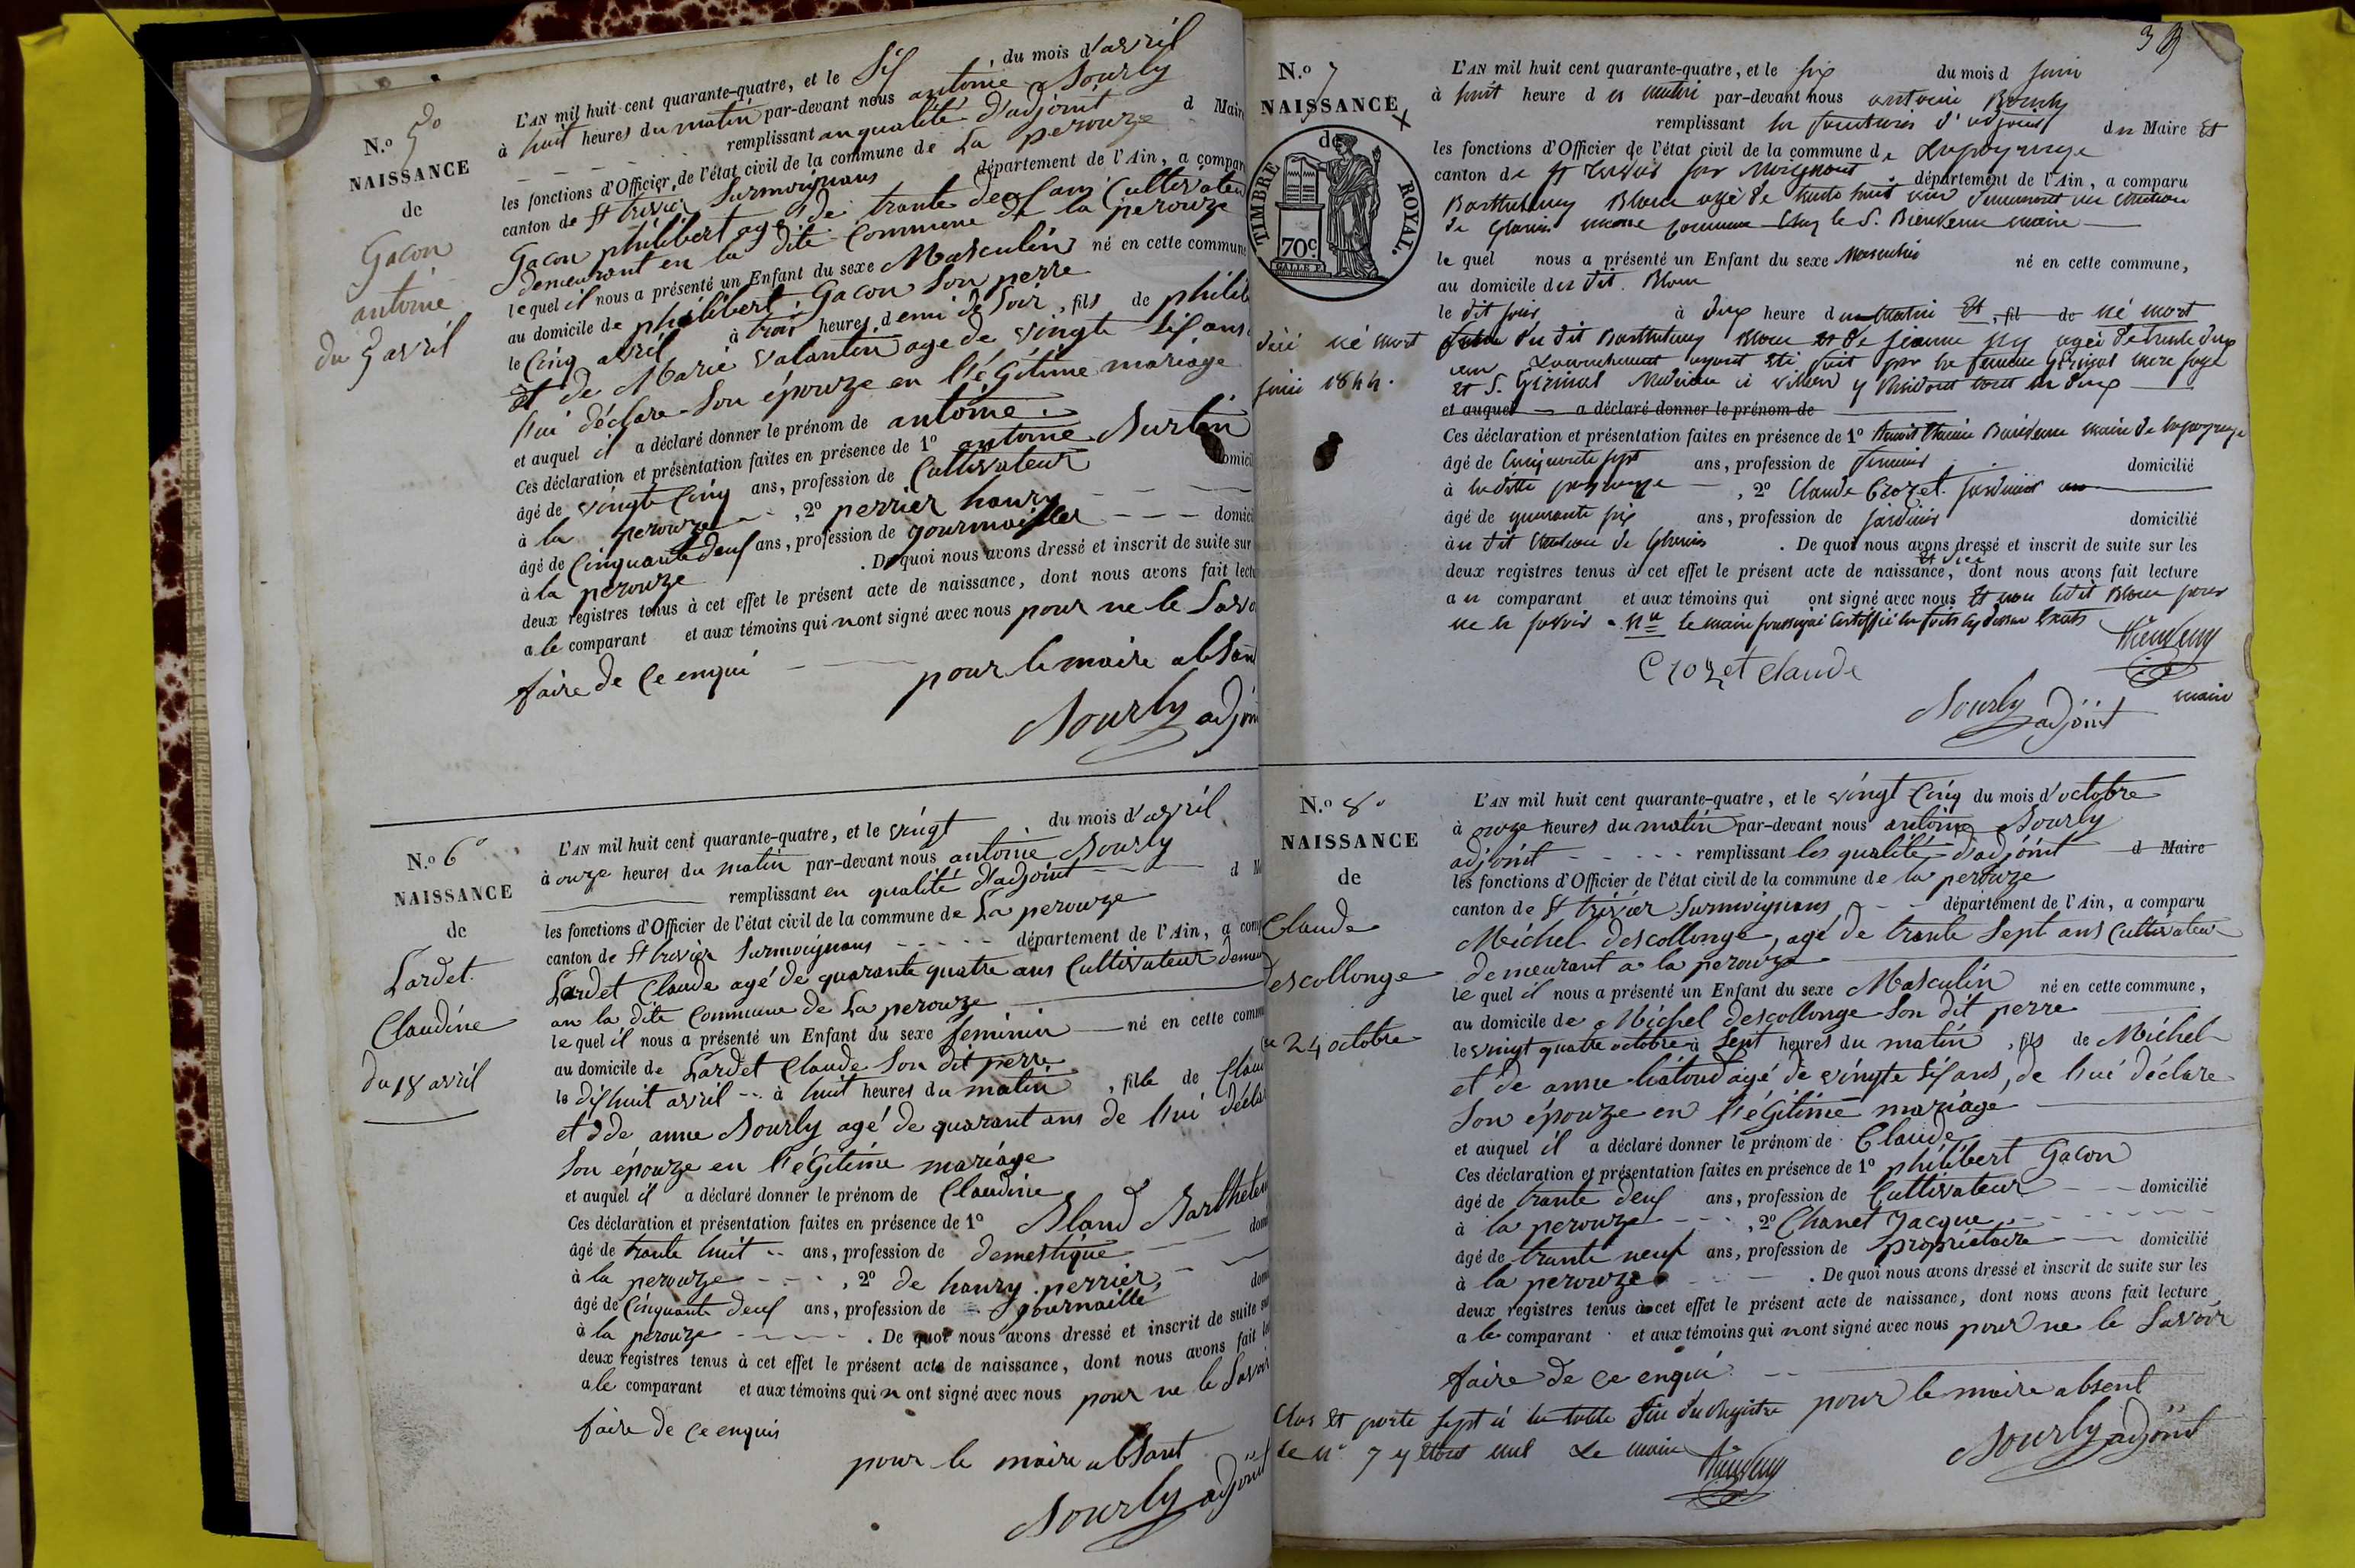 N.o 5o
NAISSANCE
de
Gacon
antoine
du 5 avril
L'AN mil huit cent quarante-quatre, et le Sif du mois d'avril
à huit heures du matin par-devant nous antoine Bourly
remplissant an qualité d'adjoint d Maire
les fonctions d'Officier de l'état civil de la commune de La perouze
canton de St trivier Surmoignans département de l'Ain, a compar
Gacon philibert agé de trante deuf ans Cultivateu
demeurant en la dite Commune de la perouze
lequel il nous a présenté un Enfant du sexe Masculin né en cette commune
au domicile de philibert Gacon Son perre
le Cinq avril à trois heures demi de Soir, fils de philib
et de Marie Valantin age de vingte Sif ans
l'ui déclare Son épouze en l'égitime mariage
et auquel il a déclaré donner le prénom de antoine.
Ces déclaration et présentation faites en présence de 1o antoine Burtin
âgé de vingte Cinq ans, profession de Cultivateur domici
à la perouze, 2o perrier hanry
âgé de Cinquante deuf ans, profession de gournaillier domici
à la perouze. De quoi nous avons dressé et inscrit de suite sur
deux registres tenus à cet effet le présent acte de naissance, dont nous avons fait lectu
a le comparant et aux témoins qui nont signé avec nous pour ne le Savo
faire de Ce enqui
pour le maire absant
Bourly adjoin
N.o 6o
NAISSANCE
de
Lardet
Claudine
du 18 avril
L'AN mil huit cent quarante-quatre, et le vingt du mois d'avril
à onze heures du matin par-devant nous antoine Bourly
remplissant en qualité d'adjoint d M
les fonctions d'Officier de l'état civil de la commune de La perouze
canton de St trivier Surmoignans département de l'Ain, a comp
Lardet Claude agé de quarante quatre ans Cultivateur demeu
an la dite Commune de La perouze
lequel il nous a présenté un Enfant du sexe feminin né en cette commu
au domicile de Lardet Claude Son dit perre
le dif huit avril à huit heures du matin, fille de Claud
et de anne Bourly agé de quarant ans de l'ui décla
Son épouze en l'égitime mariage
et auquel il a déclaré donner le prénom de Claudine
Ces déclaration et présentation faites en présence de 1o Bland Barthelem
âgé de trante huit ans, profession de demestique domi
à la perouze, 2o de hanry perrier,
âgé de Cinquante deuf ans, profession de gournaillé domi
à la perouze. De quoi nous avons dressé et inscrit de suite su
deux registres tenus à cet effet le présent acte de naissance, dont nous avons fait le
a le comparant et aux témoins qui n ont signé avec nous pour ne le Savoir
faire de Ce enquis
pour le maire absant
Bourly adjoint
39
N.o 7
NAISSANCE
de
TIMBRE ROYAL.
70c
né mort
juin 1844.
L'AN mil huit cent quarante-quatre, et le six du mois d juin
à huit heure d u matin par-devant nous antoine Bourly
remplissant les fonctions d'adjoint du Maire Et
les fonctions d'Officier de l'état civil de la commune de Lapeyrouze
canton de St Trivier sur Moignans département de l'Ain, a comparu
Barthelemy Blanc agé de trente huit ans demeurant au château
de Glareins meme commune chez le S. Bienvenu maire
le quel nous a présenté un Enfant du sexe Masculin né en cette commune,
au domicile du dit Blanc
le dit jour à deux heure du matin Et, fil de né mort
du dit Barthelemy Blanc et de jeanne agée de trente deux
ans L'accouchement ayant été fait par la femme Girinal mere sage
et S. Girinal Medecin à villard y Residant tout les deux
et auquel a déclaré donner le prénom de
Ces déclaration et présentation faites en présence de 1o Bienvenu maire de lapeyrouze
âgé de Cinquante sept ans, profession de domicilié
à ladite peyrouze, 2o Claude Crozet jardinier
âgé de quarante six ans, profession de jardinier domicilié
au dit Chateau de Glareins. De quoi nous avons dressé et inscrit de suite sur les
deux registres tenus à cet effet le présent acte de naissance, et décé dont nous avons fait lecture
a u comparant et aux témoins qui ont signé avec nous Et non ledit Blanc pour
ne le savoir le maire soussigné certiffie les faits cy dessus Exats
Crozet Claude
Bienvenu
maire
Bourly adjoint
N.o 8o
NAISSANCE
de
Claude
descollonge
24 octobre
L'AN mil huit cent quarante-quatre, et le vingt Cinq du mois d'octobre
à onze heures du matin par-devant nous antoine Bourly
adjoint remplissant les qualité d'adjoint d Maire
les fonctions d'Officier de l'état civil de la commune de la perouze
canton de St trivier Surmoignans département de l'Ain, a comparu
Michel descollonge, age de trante Sept ans Cultivateur
demeurant a la perouze
le quel il nous a présenté un Enfant du sexe Masculin né en cette commune,
au domicile de Michel descollonge Son dit perre
le vingt quatre octobre à Sept heures du matin, fils de Michel
et de anne liatoud agé de vingte Sif ans, de l'ui déclare
Son épouze en l'égitime mariage
et auquel il a déclaré donner le prénom de Claude
Ces déclaration et présentation faites en présence de 1o philibert Gacon
âgé de trante deuf ans, profession de Cultivateur domicilié
à la perouze, 2o Chanet Jacque
âgé de trante neuf ans, profession de propriétaire domicilié
à la perouze. De quoi nous avons dressé et inscrit de suite sur les
deux registres tenus à cet effet le présent acte de naissance, dont nous avons fait lecture
a le comparant et aux témoins qui nont signé avec nous pour ne le Savoir
faire de Ce enqui
pour le maire absent
Bourly adjoint
Clos Et porté sept à la table fin du Registre
le No 7 y Etant nul Le maire
Bienvenu